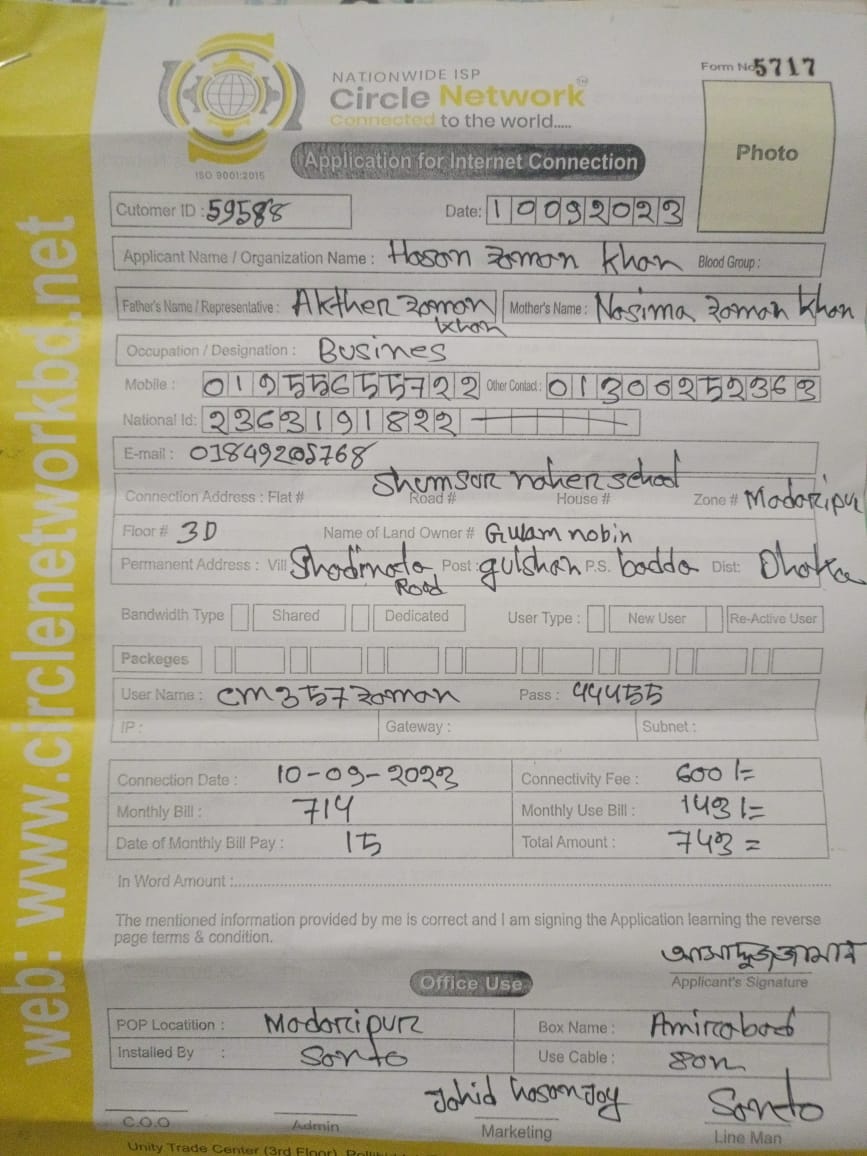 NATIONWIDE ISP
Circle Network
Connected to the world.....
ISO 9001:2015
Form No 5717
Photo
Application for Internet Connection
Cutomer ID : 59588 Date: 10092023
Applicant Name / Organization Name : Hoson zomon khan Blood Group :
Father's Name / Representative : Akther zomon khan Mother's Name : Nosima zoman khan
Occupation / Designation : Busines
Mobile : 01955655722 Other Contact : 01300252363
National Id: 2363191822
E-mail : 01849205768
Connection Address : Flat # Road # House # Zone # Modoripur
Floor # 3D Name of Land Owner # Gulam nobin
Permanent Address : Vill Road Post : gulshan P.S. badda Dist: Dhaka
Bandwidth Type Shared Dedicated User Type : New User Re-Active User
Packeges
User Name : cm357zoman Pass : 44455
IP : Gateway : Subnet :
Connection Date : 10-09-2023 Connectivity Fee : 600/=
Monthly Bill : 714 Monthly Use Bill : 143/=
Date of Monthly Bill Pay : 15 Total Amount : 743 =
In Word Amount :
The mentioned information provided by me is correct and I am signing the Application learning the reverse
page terms & condition.
আসাদুজ্জামান
Applicant's Signature
Office Use
POP Locatition : Modoripur Box Name : Amirabad
Installed By : Sonto Use Cable : 80m
Jahid hoson Joy Sonto
C.O.O Admin Marketing Line Man
Unity Trade Center (3rd Floor),
web: www.circlenetworkbd.net